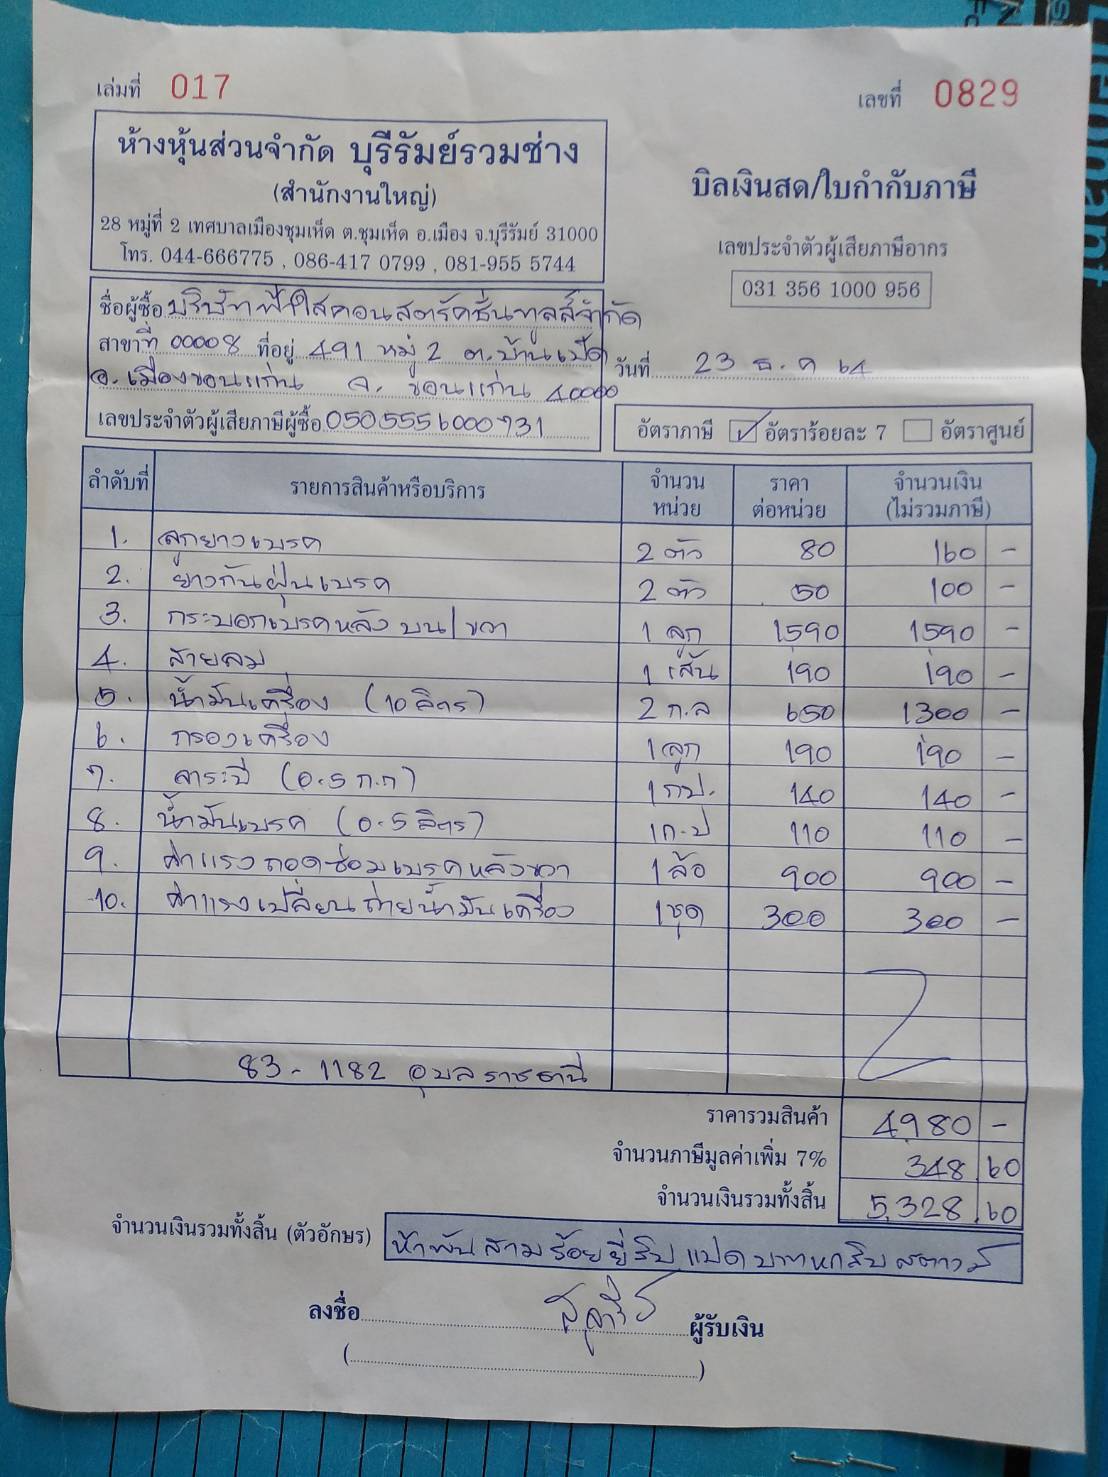 เล่มที่ 017
เลขที่ 0829
ห้างหุ้นส่วนจำกัด บุรีรัมย์รวมช่าง
(สำนักงานใหญ่)
28 หมู่ที่ 2 เทศบาลเมืองชุมเห็ด ต.ชุมเห็ด อ.เมือง จ.บุรีรัมย์ 31000
โทร. 044-666775 , 086-417 0799 , 081-955 5744
บิลเงินสด/ใบกำกับภาษี
เลขประจำตัวผู้เสียภาษีอากร
031 356 1000 956
ชื่อผู้ซื้อ บริษัทฟ้าใสคอนสตรัคชั่นทูลส์จำกัด
สาขาที่ 00008 ที่อยู่ 491 หมู่ 2 ต.บ้านเป็ด
อ.เมืองขอนแก่น จ. ขอนแก่น 40000
วันที่ 23 ธ.ค 64
เลขประจำตัวผู้เสียภาษีผู้ซื้อ 0505556000731
อัตราภาษี ✓ อัตราร้อยละ 7 อัตราศูนย์
ลำดับที่ รายการสินค้าหรือบริการ จำนวนหน่วย ราคาต่อหน่วย จำนวนเงิน (ไม่รวมภาษี)
1. ลูกยางเบรค 2 ตัว 80 160 -
2. ยางกันฝุ่นเบรค 2 ตัว 50 100 -
3. กระบอกเบรคหลัง บน/ขวา 1 ลูก 1590 1590 -
4. สายลม 1 เส้น 190 190 -
5. น้ำมันเครื่อง (10 ลิตร) 2 ก.ล 650 1300 -
6. กรองเครื่อง 1 ลูก 190 190 -
7. จาระบี (0.5 ก.ก) 1 กป. 140 140 -
8. น้ำมันเบรค (0.5 ลิตร) 1 ก.ป 110 110 -
9. ค่าแรงถอดซ่อมเบรคหลังขวา 1 ล้อ 900 900 -
10. ค่าแรงเปลี่ยนถ่ายน้ำมันเครื่อง 1 ชุด 300 300 -
83-1182 อุบลราชธานี
ราคารวมสินค้า 4980 -
จำนวนภาษีมูลค่าเพิ่ม 7% 348.60
จำนวนเงินรวมทั้งสิ้น 5,328.60
จำนวนเงินรวมทั้งสิ้น (ตัวอักษร) ห้าพันสามร้อยยี่สิบแปดบาทหกสิบสตางค์
ลงชื่อ ผู้รับเงิน